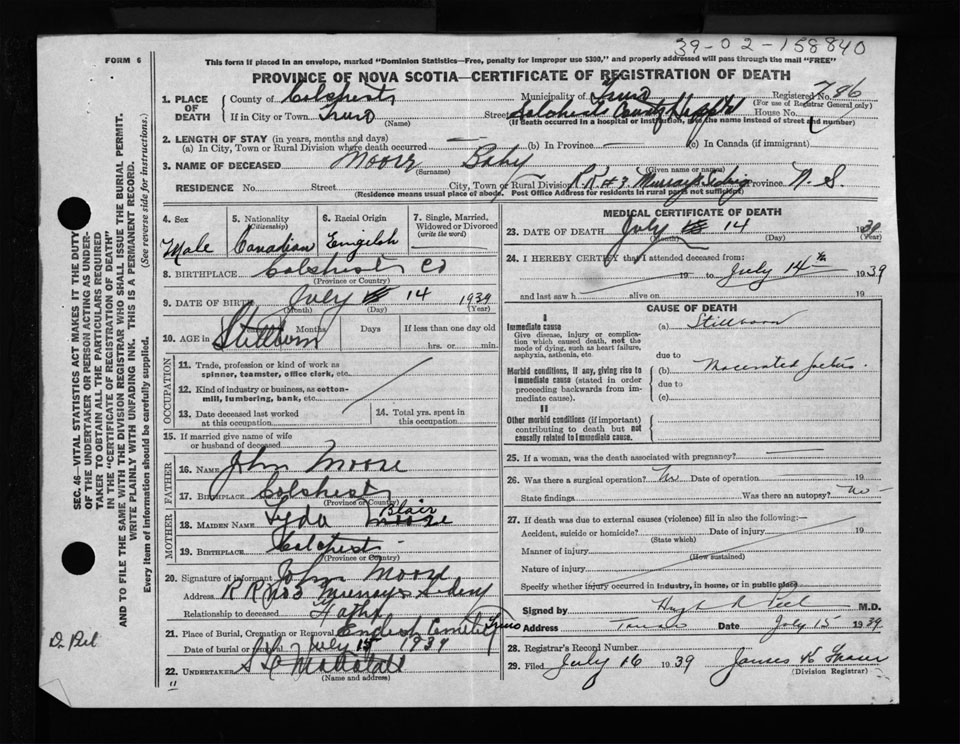 39-02-158840
FORM 6
This form if placed in an envelope, marked "Dominion Statistics—Free, penalty for improper use $300," and properly addressed will pass through the mail "FREE"
PROVINCE OF NOVA SCOTIA—CERTIFICATE OF REGISTRATION OF DEATH
1. PLACE OF DEATH
County of Colchester
Municipality of Truro
Registered No. 786
(For use of Registrar General only)
If in City or Town Truro
(Name)
Street Colchester County Hospital House No.
(If death occurred in a hospital or institution, give the name instead of street and number)
2. LENGTH OF STAY (in years, months and days)
(a) In City, Town or Rural Division where death occurred
(b) In Province
(c) In Canada (if immigrant)
3. NAME OF DECEASED Moore Baby
(Surname)
(Given name or names)
RESIDENCE No. Street City, Town or Rural Division R R # 3 Murray's Siding Province N. S.
(Residence means usual place of abode. Post Office Address for residents in rural parts not sufficient)
4. Sex
Male
5. Nationality (Citizenship)
Canadian
6. Racial Origin
7. Single, Married, Widowed or Divorced (write the word)
8. BIRTHPLACE Colchester Co
(Province or Country)
9. DATE OF BIRTH July 14 1939
(Month) (Day) (Year)
10. AGE in Stillborn Months Days If less than one day old
hrs. or min.
OCCUPATION
11. Trade, profession or kind of work as spinner, teamster, office clerk, etc.
12. Kind of industry or business, as cotton-mill, lumbering, bank, etc.
13. Date deceased last worked at this occupation
14. Total yrs. spent in this occupation
15. If married give name of wife or husband of deceased
FATHER
16. NAME John Moore
17. BIRTHPLACE Colchester
(Province or Country)
MOTHER
18. MAIDEN NAME Lyda Blair
19. BIRTHPLACE Colchester
(Province or Country)
20. Signature of informant John Moore
Address R R No 3 Murray's Siding
Relationship to deceased Father
21. Place of Burial, Cremation or Removal Cemetery Truro
Date of burial or removal July 15 1939
22. UNDERTAKER
(Name and address)
MEDICAL CERTIFICATE OF DEATH
23. DATE OF DEATH July 14 1939
(Month) (Day) (Year)
24. I HEREBY CERTIFY that I attended deceased from:
19 to July 14th 1939
and last saw h alive on 19
CAUSE OF DEATH
I
Immediate cause
Give disease, injury or complication which caused death, not the mode of dying, such as heart failure, asphyxia, asthenia, etc.
(a) Stillborn
due to
Morbid conditions, if any, giving rise to immediate cause (stated in order proceeding backwards from immediate cause).
(b) Macerated foetus.
due to
(c)
II
Other morbid conditions (if important) contributing to death but not causally related to immediate cause.
25. If a woman, was the death associated with pregnancy?
26. Was there a surgical operation? No Date of operation 19
State findings Was there an autopsy? No
27. If death was due to external causes (violence) fill in also the following:—
Accident, suicide or homicide? Date of injury 19
(State which)
Manner of injury
(How sustained)
Nature of injury
Specify whether injury occurred in industry, in home, or in public place
Signed by Hugh R Peel M.D.
Address Truro Date July 15 1939
28. Registrar's Record Number
29. Filed July 16 1939 James K Fraser
(Division Registrar)
SEC. 46—VITAL STATISTICS ACT MAKES IT THE DUTY OF THE UNDERTAKER OR PERSON ACTING AS UNDERTAKER TO OBTAIN ALL THE PARTICULARS REQUIRED IN THE "CERTIFICATE OF REGISTRATION OF DEATH" AND TO FILE THE SAME WITH THE DIVISION REGISTRAR WHO SHALL ISSUE THE BURIAL PERMIT.
WRITE PLAINLY WITH UNFADING INK. THIS IS A PERMANENT RECORD.
Every item of information should be carefully supplied. (See reverse side for instructions.)
Dr. Peel